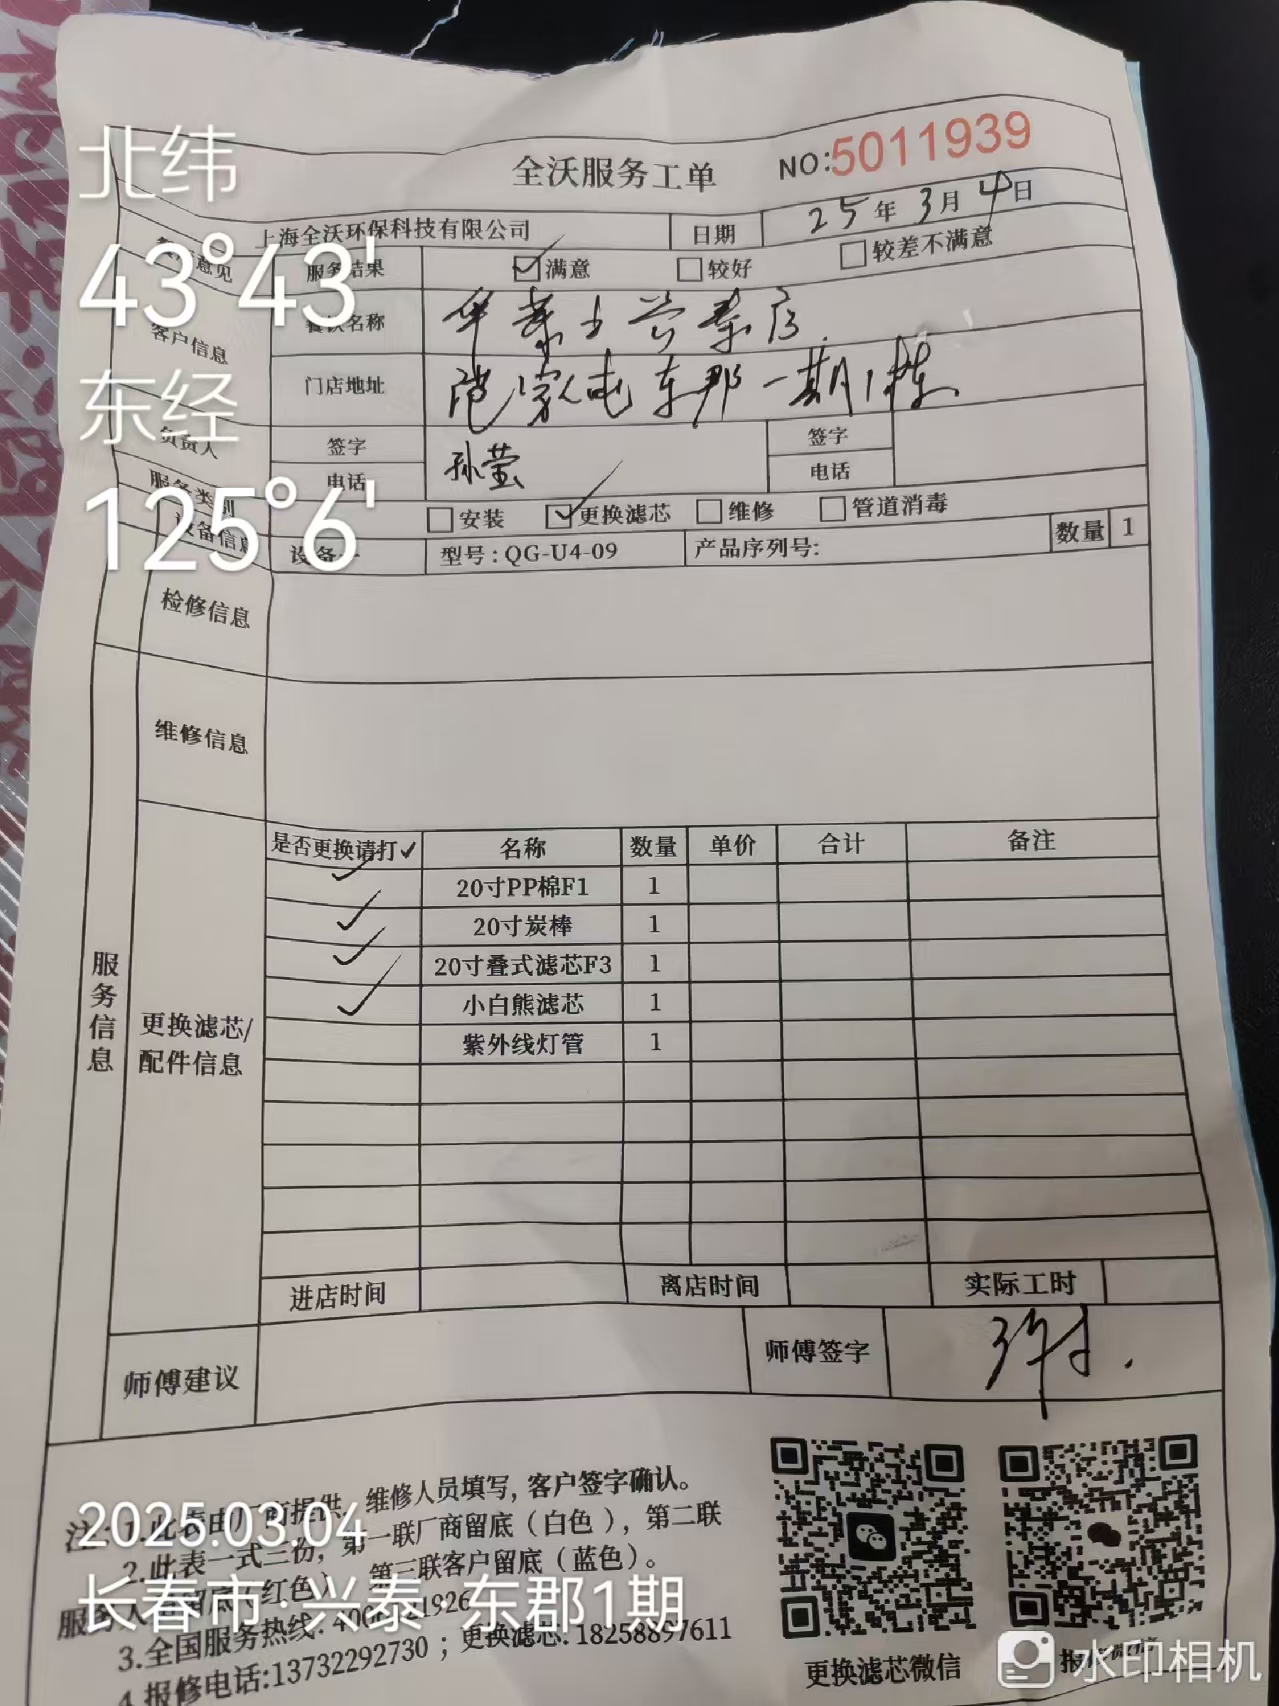 全沃服务工单 NO:5011939
上海全沃环保科技有限公司 日期 25年3月4日
意见 服务结果 满意 较好 较差不满意
客户信息 名称 兴泰店
门店地址 东郡一期1栋
负责人 签字 孙莹 签字
电话 电话
服务类别 安装 更换滤芯 维修 管道消毒
设备信息 设备一 型号:QG-U4-09 产品序列号: 数量 1
检修信息
维修信息
服务信息
更换滤芯/
配件信息
是否更换请打✓ 名称 数量 单价 合计 备注
✓ 20寸PP棉F1 1
✓ 20寸炭棒 1
✓ 20寸叠式滤芯F3 1
✓ 小白熊滤芯 1
紫外线灯管 1
进店时间 离店时间 实际工时
师傅建议 师傅签字
注:1.此表由厂商提供,维修人员填写,客户签字确认。
2.此表一式三份,第一联厂商留底(白色),第二联
服务人 留底(红色) 第三联客户留底(蓝色)。
3.全国服务热线:
4.报修电话:13732292730;更换滤芯:18258897611
更换滤芯微信 报修微信
北纬
43°43'
东经
125°6'
2025.03.04
长春市·兴泰 东郡1期
水印相机